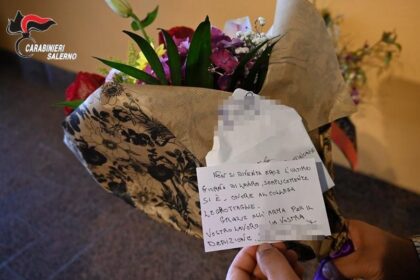 CARABINIERI
SALERNO
NON SI DIVENTA EROI L'ULTIMO
GIORNO DI LAVORO, SEMPLICEMENTE
SI È, COME AL COLLEGA
GRAZIE ALL'ARMA PER IL
VOSTRO LAVORO LA VOSTRA
DEDIZIONE